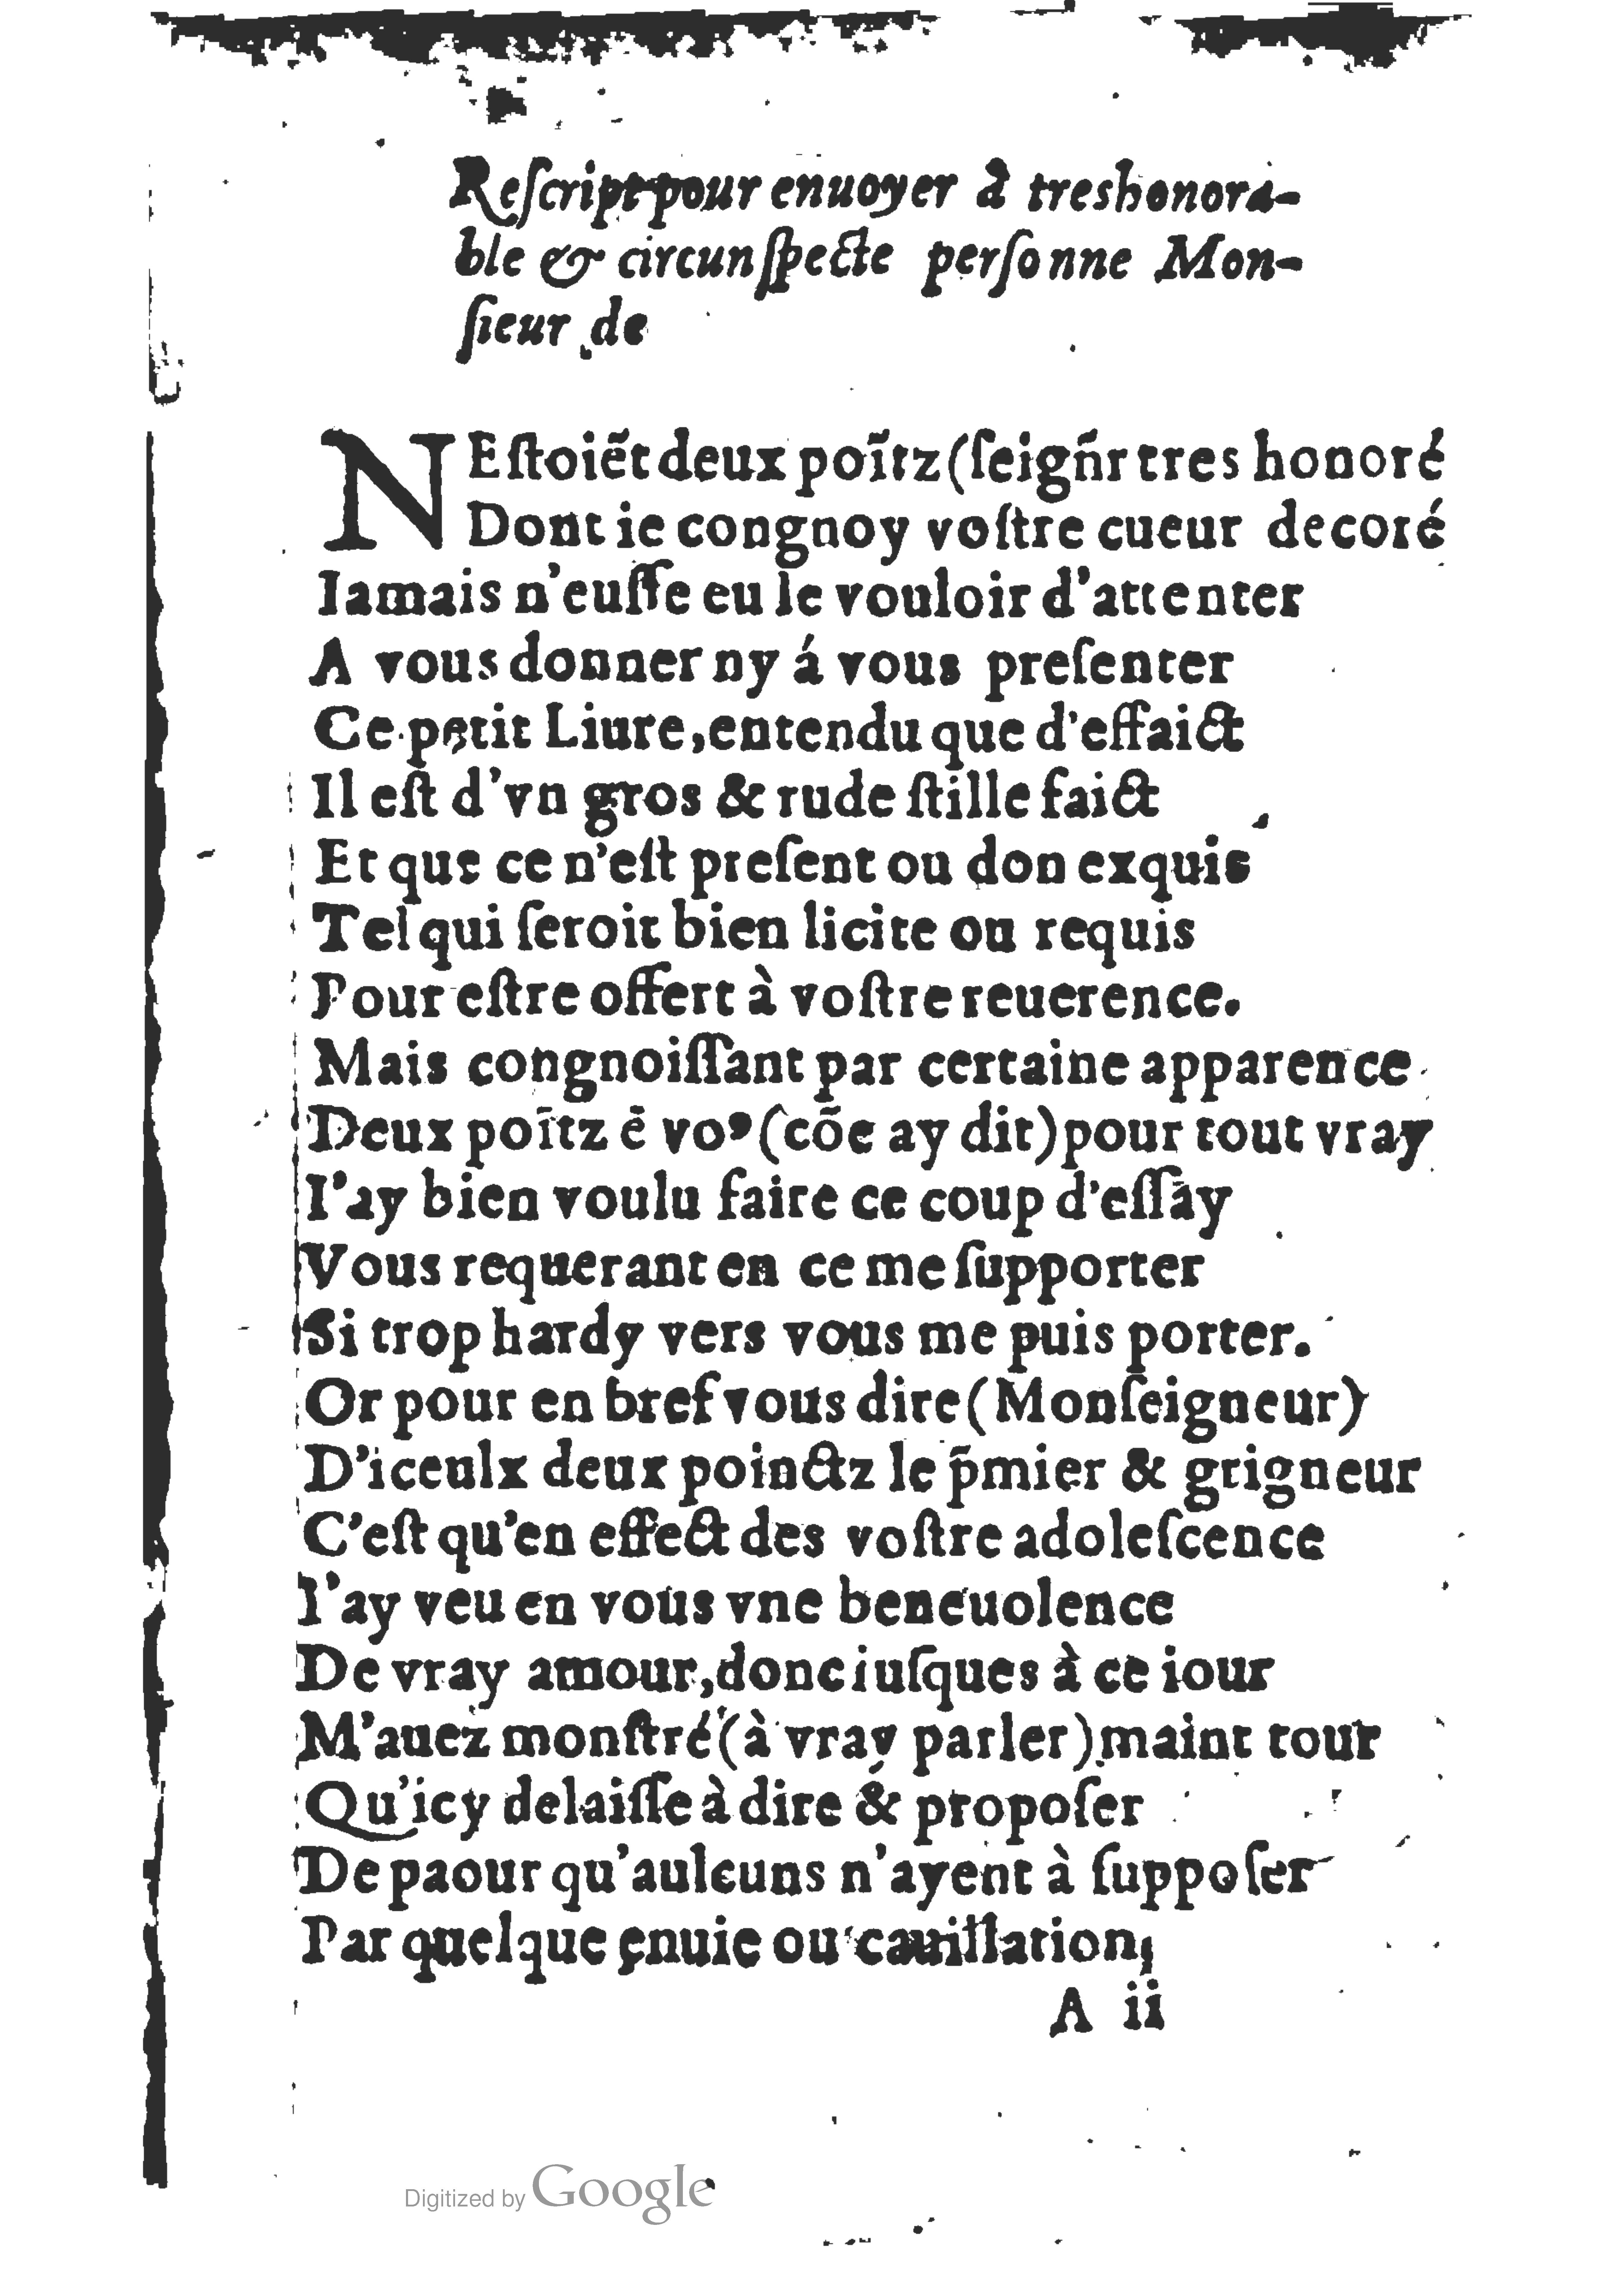 Reſcript pour enuoyer à treshonora-
ble & circunſpecte perſonne Mon-
ſieur de
NEſtoiẽt deux poĩtz (ſeigñr tres honoré
Dont ie congnoy voſtre cueur decoré
Iamais n'euſſe eu le vouloir d'attenter
A vous donner ny á vous preſenter
Ce petit Liure, entendu que d'effaict
Il eſt d'vn gros & rude ſtille faict
Et que ce n'eſt preſent ou don exquis
Tel qui ſeroit bien licite ou requis
Pour eſtre offert à voſtre reuerence.
Mais congnoiſſant par certaine apparence
Deux poĩtz ẽ voꝰ (cõe ay dit) pour tout vray
I'ay bien voulu faire ce coup d'eſſay
Vous requerant en ce me ſupporter
Si trop hardy vers vous me puis porter.
Or pour en bref vous dire (Monſeigneur)
D'iceulx deux poinctz le p̃mier & grigneur
C'eſt qu'en effect des voſtre adoleſcence
I'ay veu en vous vne beneuolence
De vray amour, donc iuſques à ce iour
M'auez monſtré (à vray parler) maint tour
Qu'icy delaiſſe à dire & propoſer
De paour qu'aulcuns n'ayent à ſuppoſer
Par quelque enuie ou cauillation,
A ii
Digitized by Google